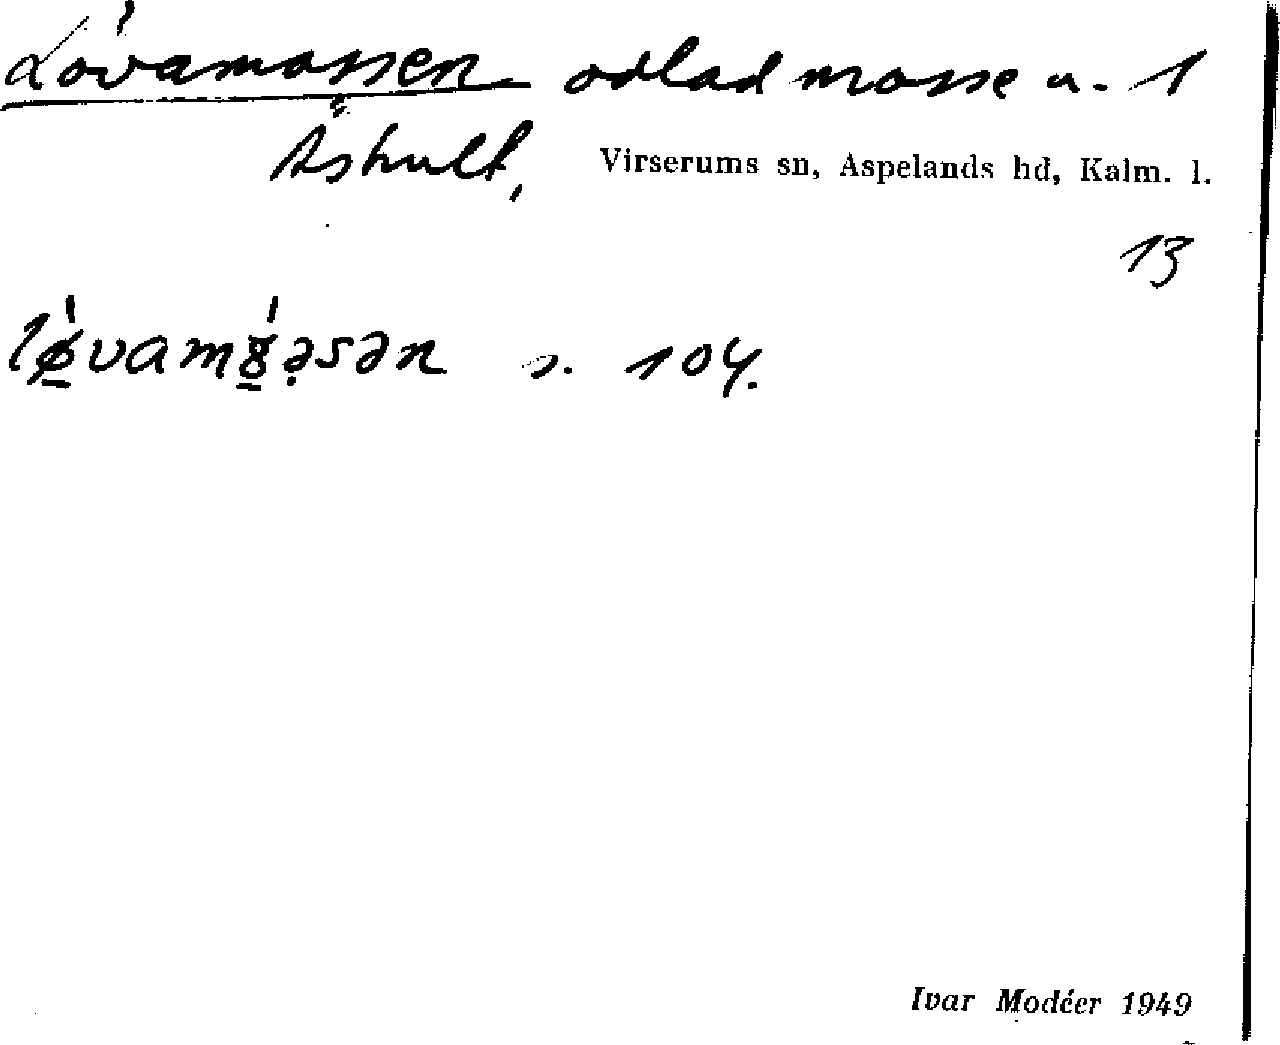 Lövamossen odlad mosse u. 1
Äshult, Virserums sn, Aspelands hd, Kalm. l.
13
s. 104.
Ivar Modéer 1949